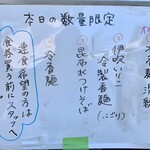 本日の数量限定
伊吹いりこ
冷製香麺
(にごり)
昆布水つけそば
冷香麺
連食希望の方は
食券買う前にスタッフへ